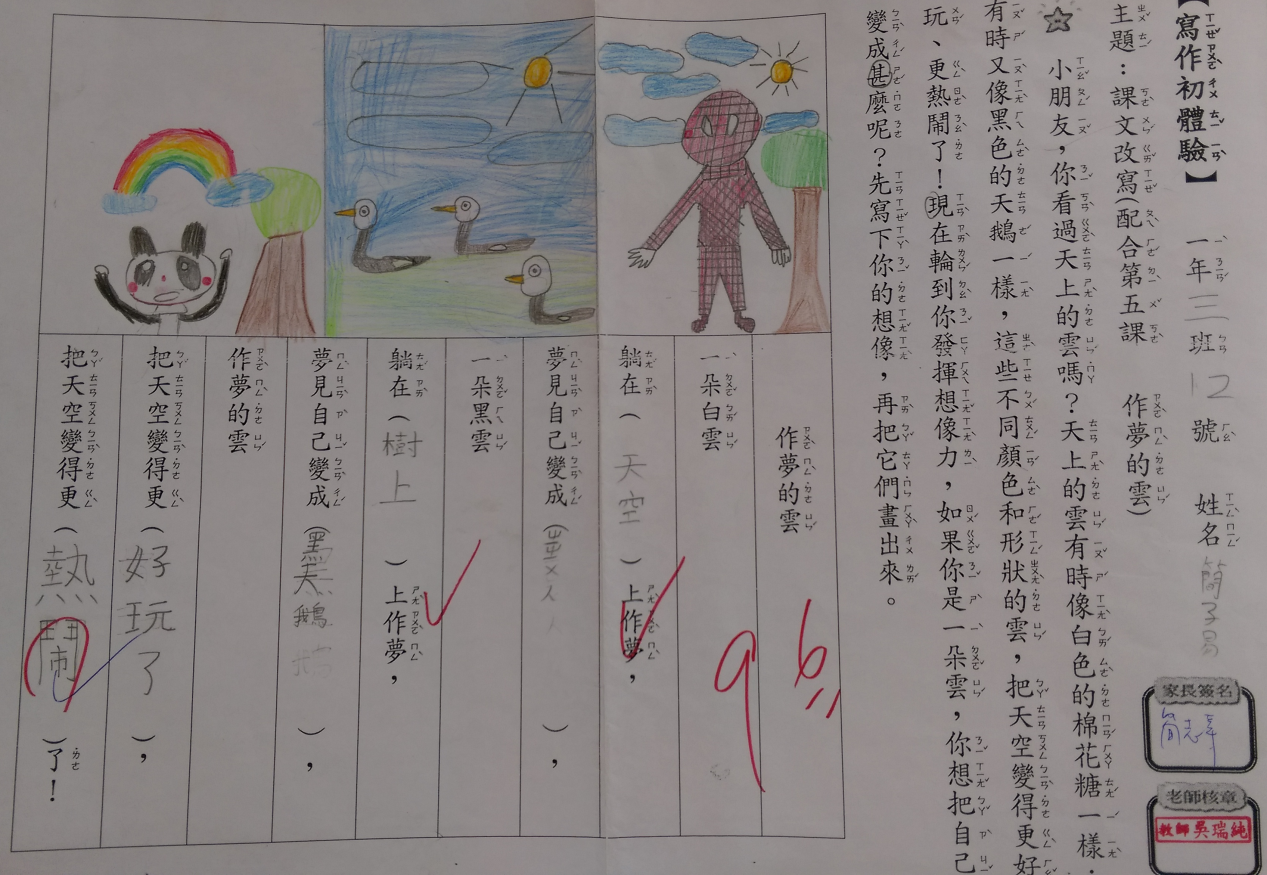 【寫作初體驗】 一年三班12號 姓名簡子易
主題：課文改寫(配合第五課 作夢的雲)
小朋友，你看過天上的雲嗎？天上的雲有時像白色的棉花糖一樣，
有時又像黑色的天鵝一樣，這些不同顏色和形狀的雲，把天空變得更好
玩、更熱鬧了！現在輪到你發揮想像力，如果你是一朵雲，你想把自己
變成甚麼呢？先寫下你的想像，再把它們畫出來。
家長簽名
老師核章
教師吳瑞純
作夢的雲
96
一朵白雲
躺在(天空)上作夢，
夢見自己變成(ㄓㄨ人)，
一朵黑雲
躺在(樹上)上作夢，
夢見自己變成(黑天鵝)，
作夢的雲
把天空變得更(好玩了)，
把天空變得更(熱鬧)了！